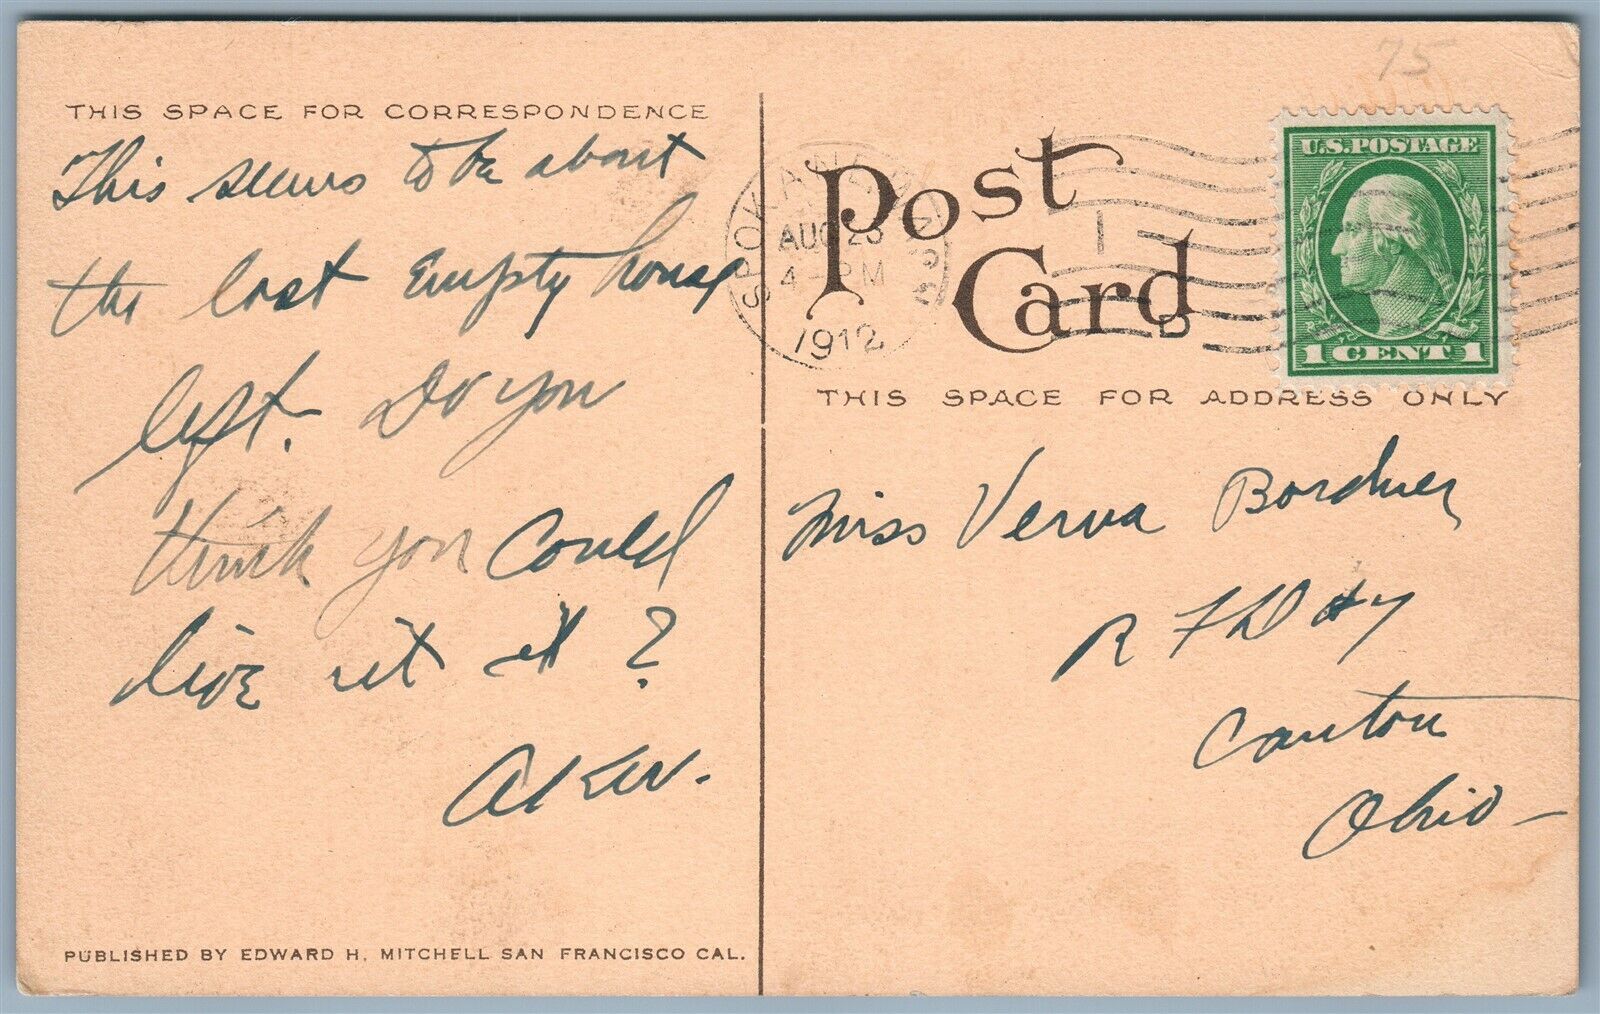 75
THIS SPACE FOR CORRESPONDENCE
Post
Card
U.S. POSTAGE
1 CENT 1
SPOKANE
AUG 23
4 - PM
1912
1
D
THIS SPACE FOR ADDRESS ONLY
This seems to be about
the last empty house
left. Do you
think you could
live it it?
Miss Verna Bordner
R F D #7
Canton
Ohio
PUBLISHED BY EDWARD H. MITCHELL SAN FRANCISCO CAL.